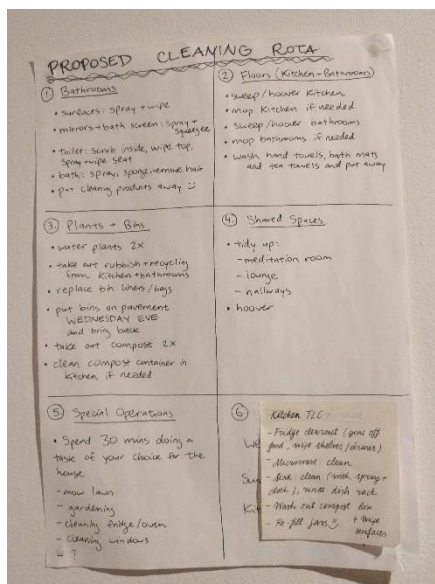 PROPOSED CLEANING ROTA
① Bathrooms
• surfaces: spray + wipe
• mirrors + bath screen: spray +
squeegee
• toilet: scrub inside, wipe top,
spray + wipe seat
• bath: spray, sponge, remove hair
• put cleaning products away
② Floors (Kitchen - Bathrooms)
• sweep/hoover kitchen
• mop kitchen if needed
• sweep/hoover bathrooms
• mop bathrooms if needed
• wash hand towels, bath mats
and tea towels and put away
③ Plants + Bins
• water plants 2x
• take out rubbish + recycling
from kitchen + bathrooms
• replace bin liners/bags
• put bins on pavement
WEDNESDAY EVE
and bring back
• take out compost 2x
• clean compost container in
kitchen if needed
④ Shared Spaces
• tidy up:
- meditation room
- lounge
- hallways
• hoover
⑤ Special Operations
• Spend 30 mins doing a
task of your choice for the
house
- mow lawn
- gardening
- cleaning fridge/oven
- cleaning windows
- ?
⑥
We
Sun
Kit
Kitchen TLC
- Fridge clearout (gone off
food, wipe shelves/drawers)
- Microwave: clean
- Sink: clean (with spray +
), rinse dish rack
- Wash out compost box
- Re-fill jars + wipe
surfaces